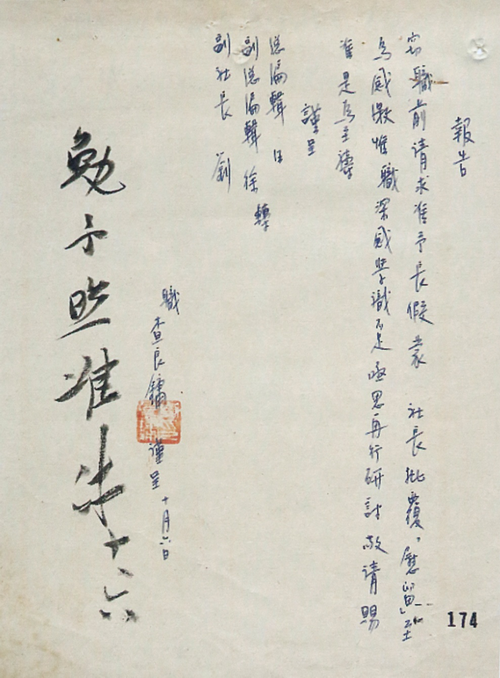 報告
竊職前請求准予長假蒙 社長批覆「慰留」至
為感激惟職深感學識不足亟思再行研討敬請賜
准是為至禱
謹呈
總編輯
副總編輯 徐 轉
副社長 劉
職查良鏞謹呈 十月六日
勉予照准 朱 十、六
174